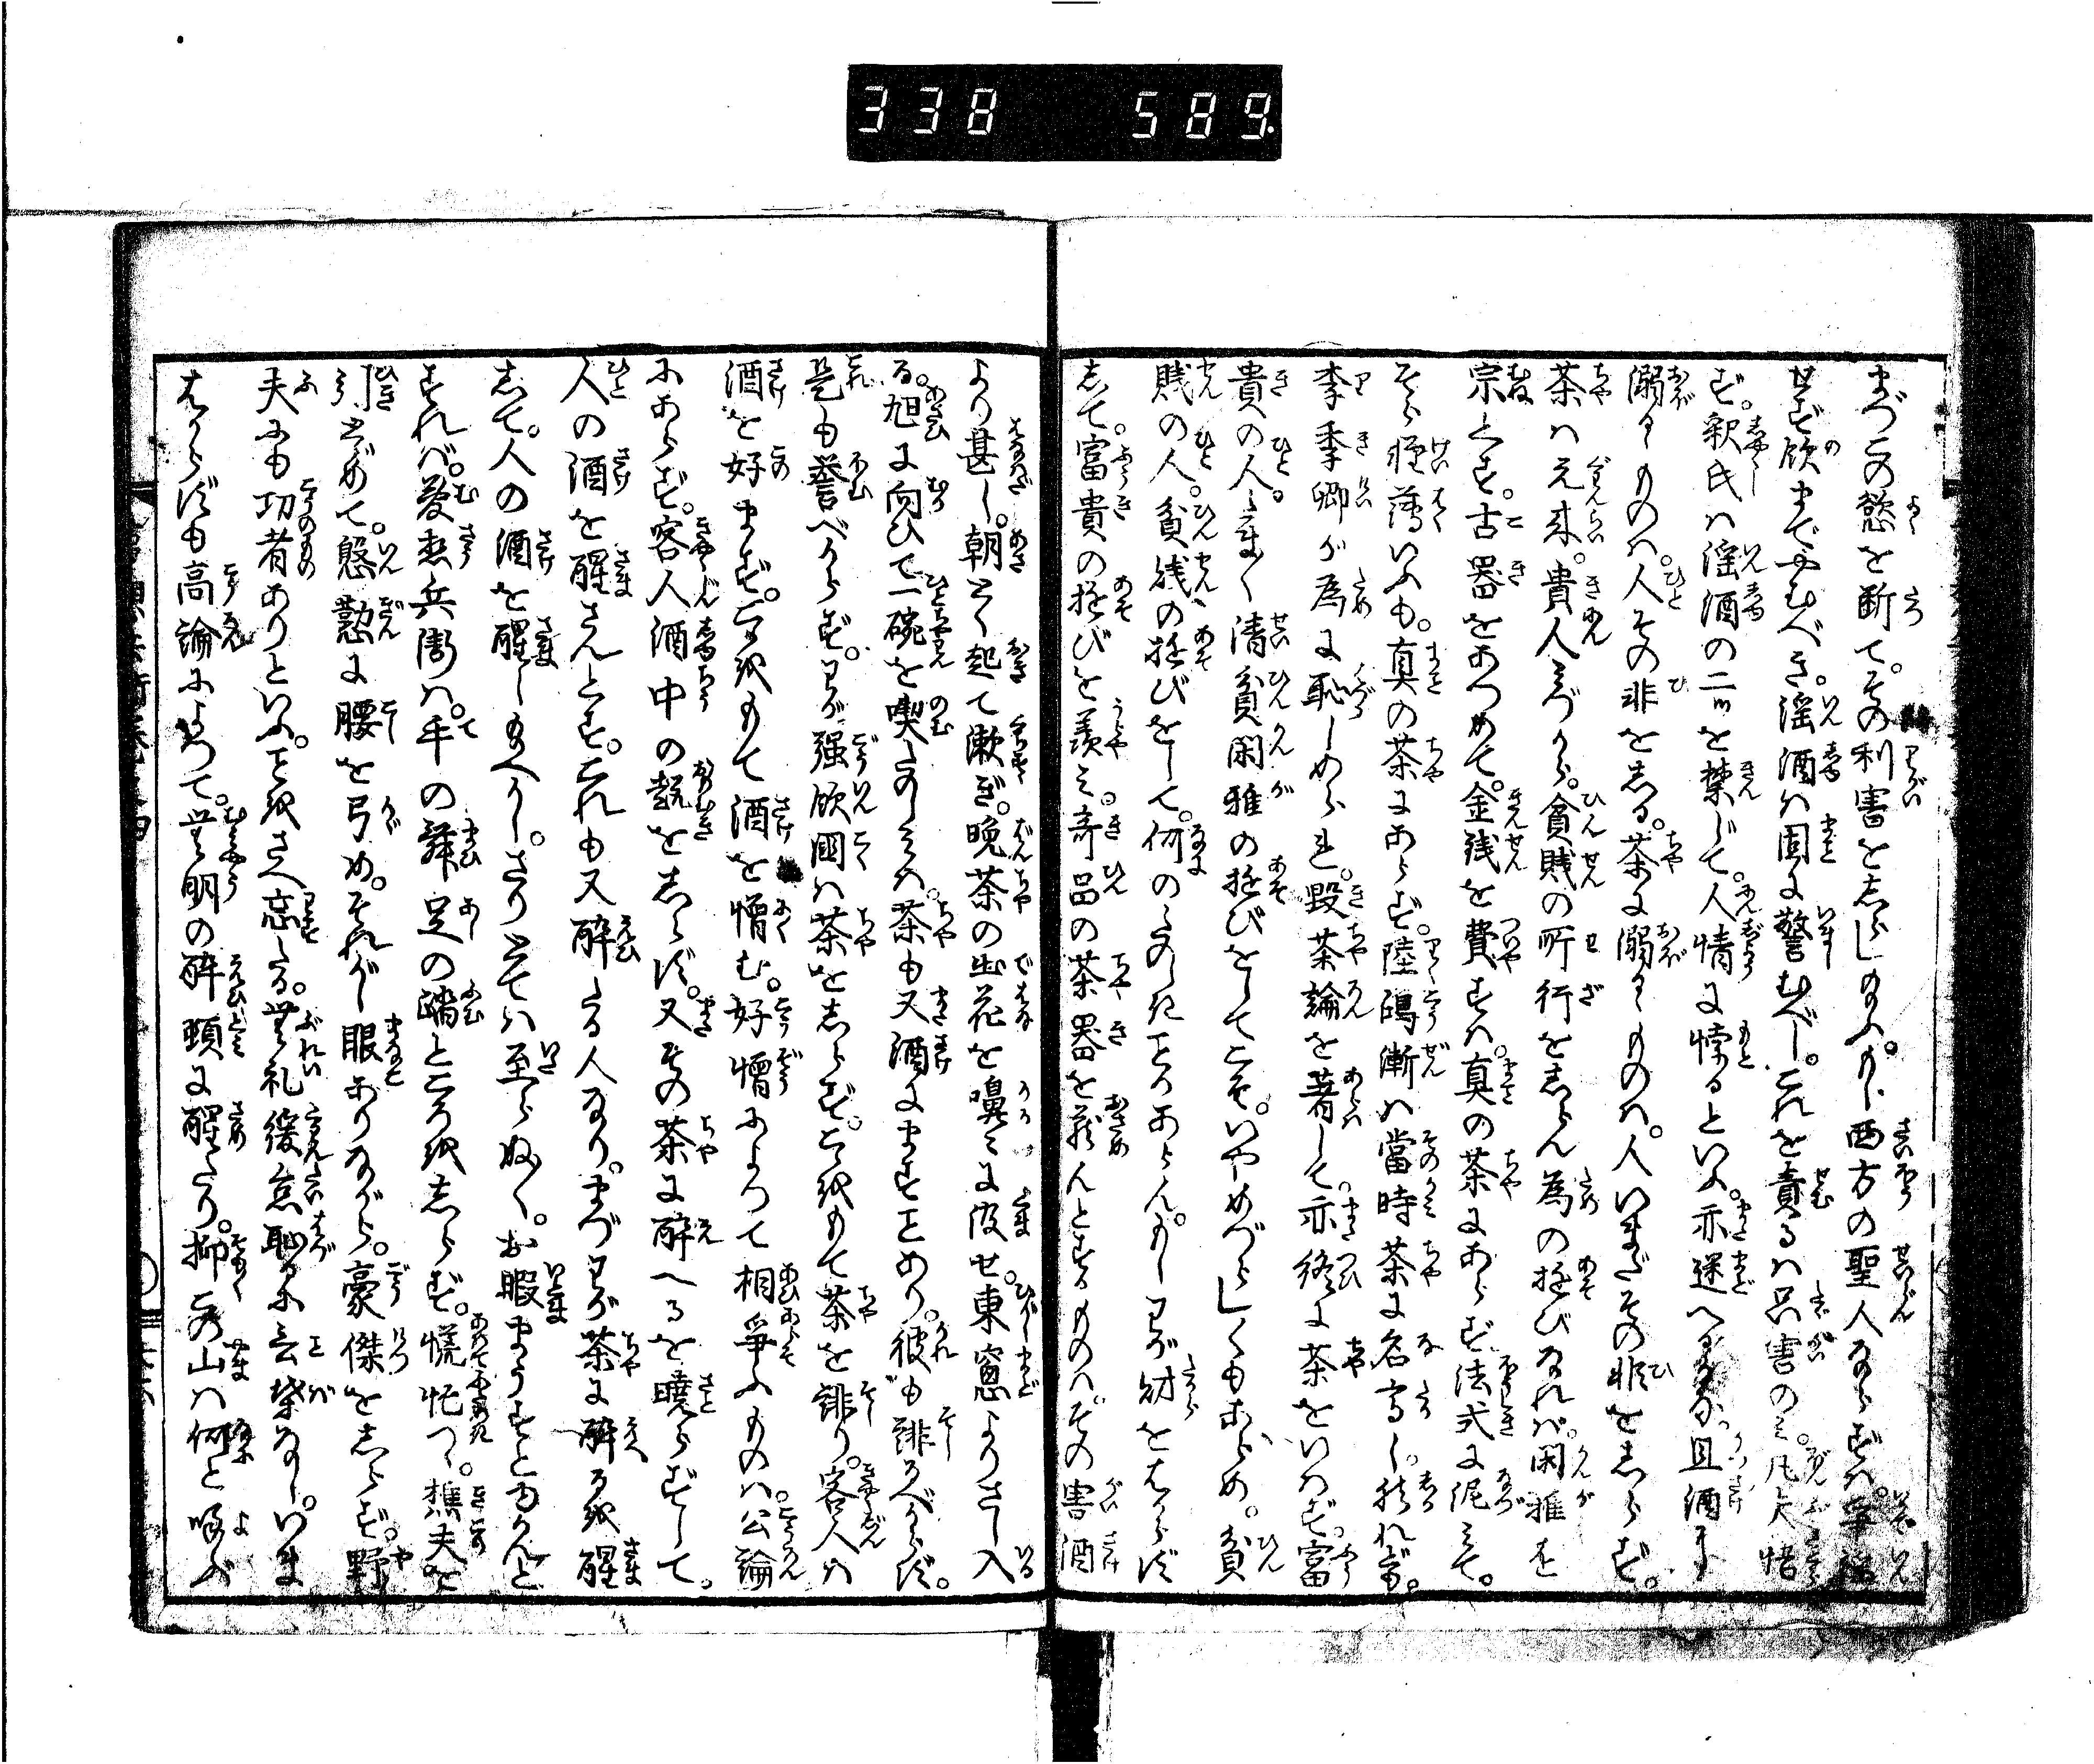 338 589
まづこの慾を断て。その利害をしらしめ給ふ。もし西方の聖人ならずは。
せず飲までやむべき。淫酒は固に警むべし。これを責るは只害のみ。凡夫悟
ず。釈氏は淫酒の二ツを禁じて。人情に悖るといふ。亦迷へるなるか。且酒に
溺るゝものは。人その非をしる。茶に溺るゝものは。人いまだその非をしらず。
茶は元来。貴人みづから。貧賤の所行をしらん為の遊びなれば。閑雅を
宗とす。古器をあつめて。金銭を費すは。真の茶にあらず法式に泥みて。
そら軽薄いふも。真の茶にあらず。陸鴻漸は當時茶に名高し。されども。
李季卿が為に恥しめられ。毀茶論を著して。亦終に茶をいはず。富
貴の人。よく清貧閑雅の遊びをしてこそ。いやめづらしくもあらめ。貧
賤の人。貧賤の遊びをして。何のたのしきことかあらん。もしわが財をはからず
して。富貴の遊びを羨み。奇品の茶器を蔵んとするものは。その害酒
より甚し。朝とく起て漱ぎ。晩茶の出花を嚊々に汲せ。東窓よりさし入
る。旭に向ひて一碗を喫たのしみは。茶も又酒にますことあり。彼も誹るべからず。
是も誉べからず。わが強飲国は茶をしらず。こゝをもて茶を誹り。客人は
酒を好まず。こゝをもて酒を憎む。好憎によつて相争ふものは。公論
にあらず。客人酒中の趣をしらず。又その茶に酔へるを暁らずして。
人の酒を醒さんとす。これも又酔たる人なり。まづわが茶に酔るを醒
して。人の酒を醒し給へかし。さりとては至らぬ〳〵。お暇まうすと ゆかんと
すれば。夢想兵衛は。手の舞足の踏ところをしらず。慌忙て。樵夫を
引とゞめて。慇懃に腰を弓め。それがし眼ありながら。豪傑をしらず。野
夫にも功者ありといふ。ことをさへ忘たる。無礼緩怠恥るに言葉なし。いま
はからずも高論によつて。無明の酔頓に醒たり。抑この山は何と喚ぶ